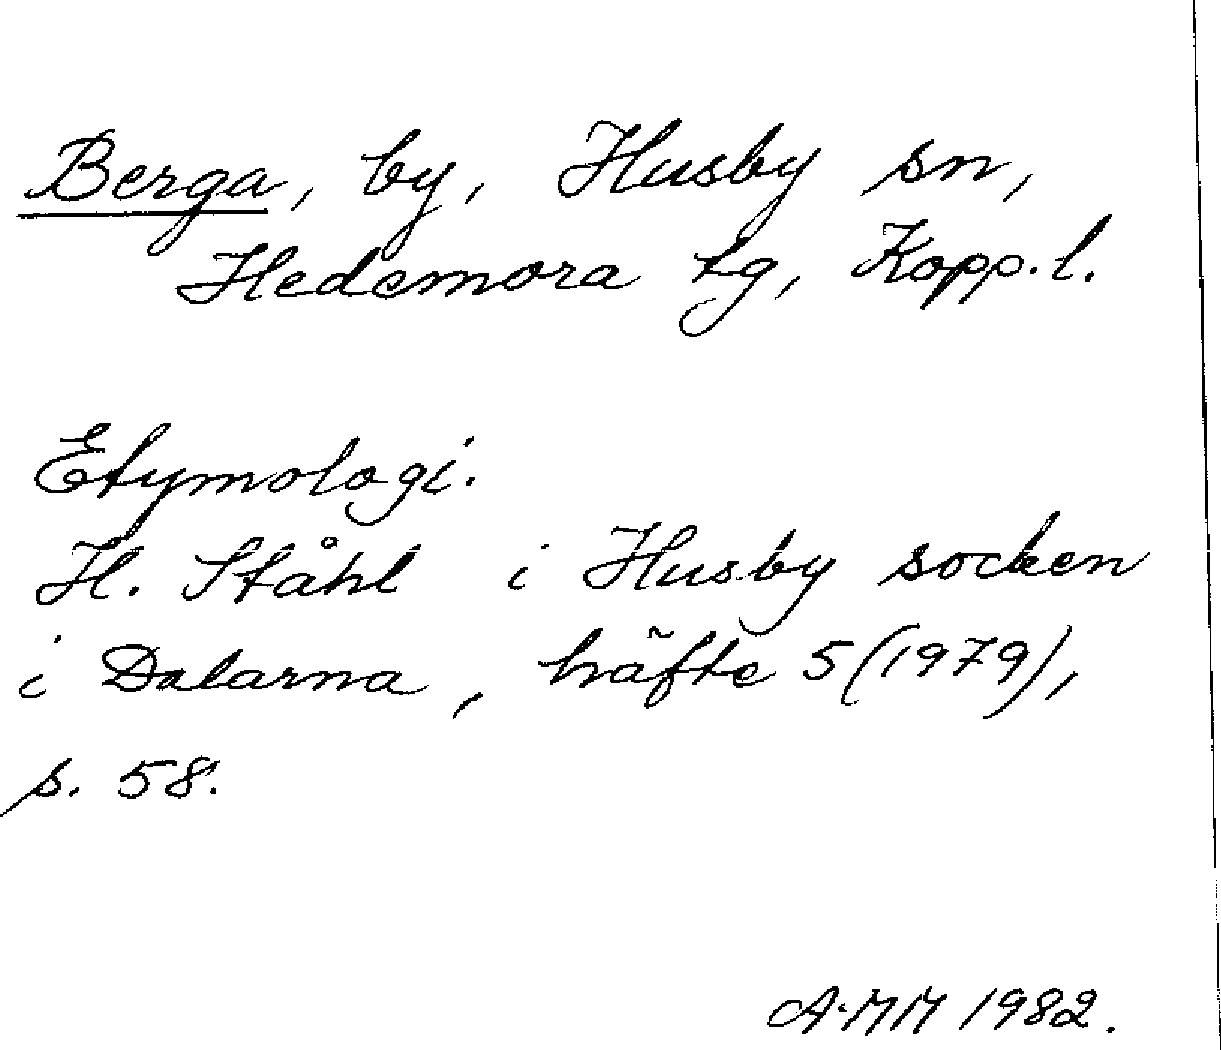 Berga, by, Husby sn,
Hedemora tg, Kopp.l.
Etymologi.
H. Ståhl i Husby socken
i Dalarna, häfte 5(1979),
s. 58.
A-MM 1982.